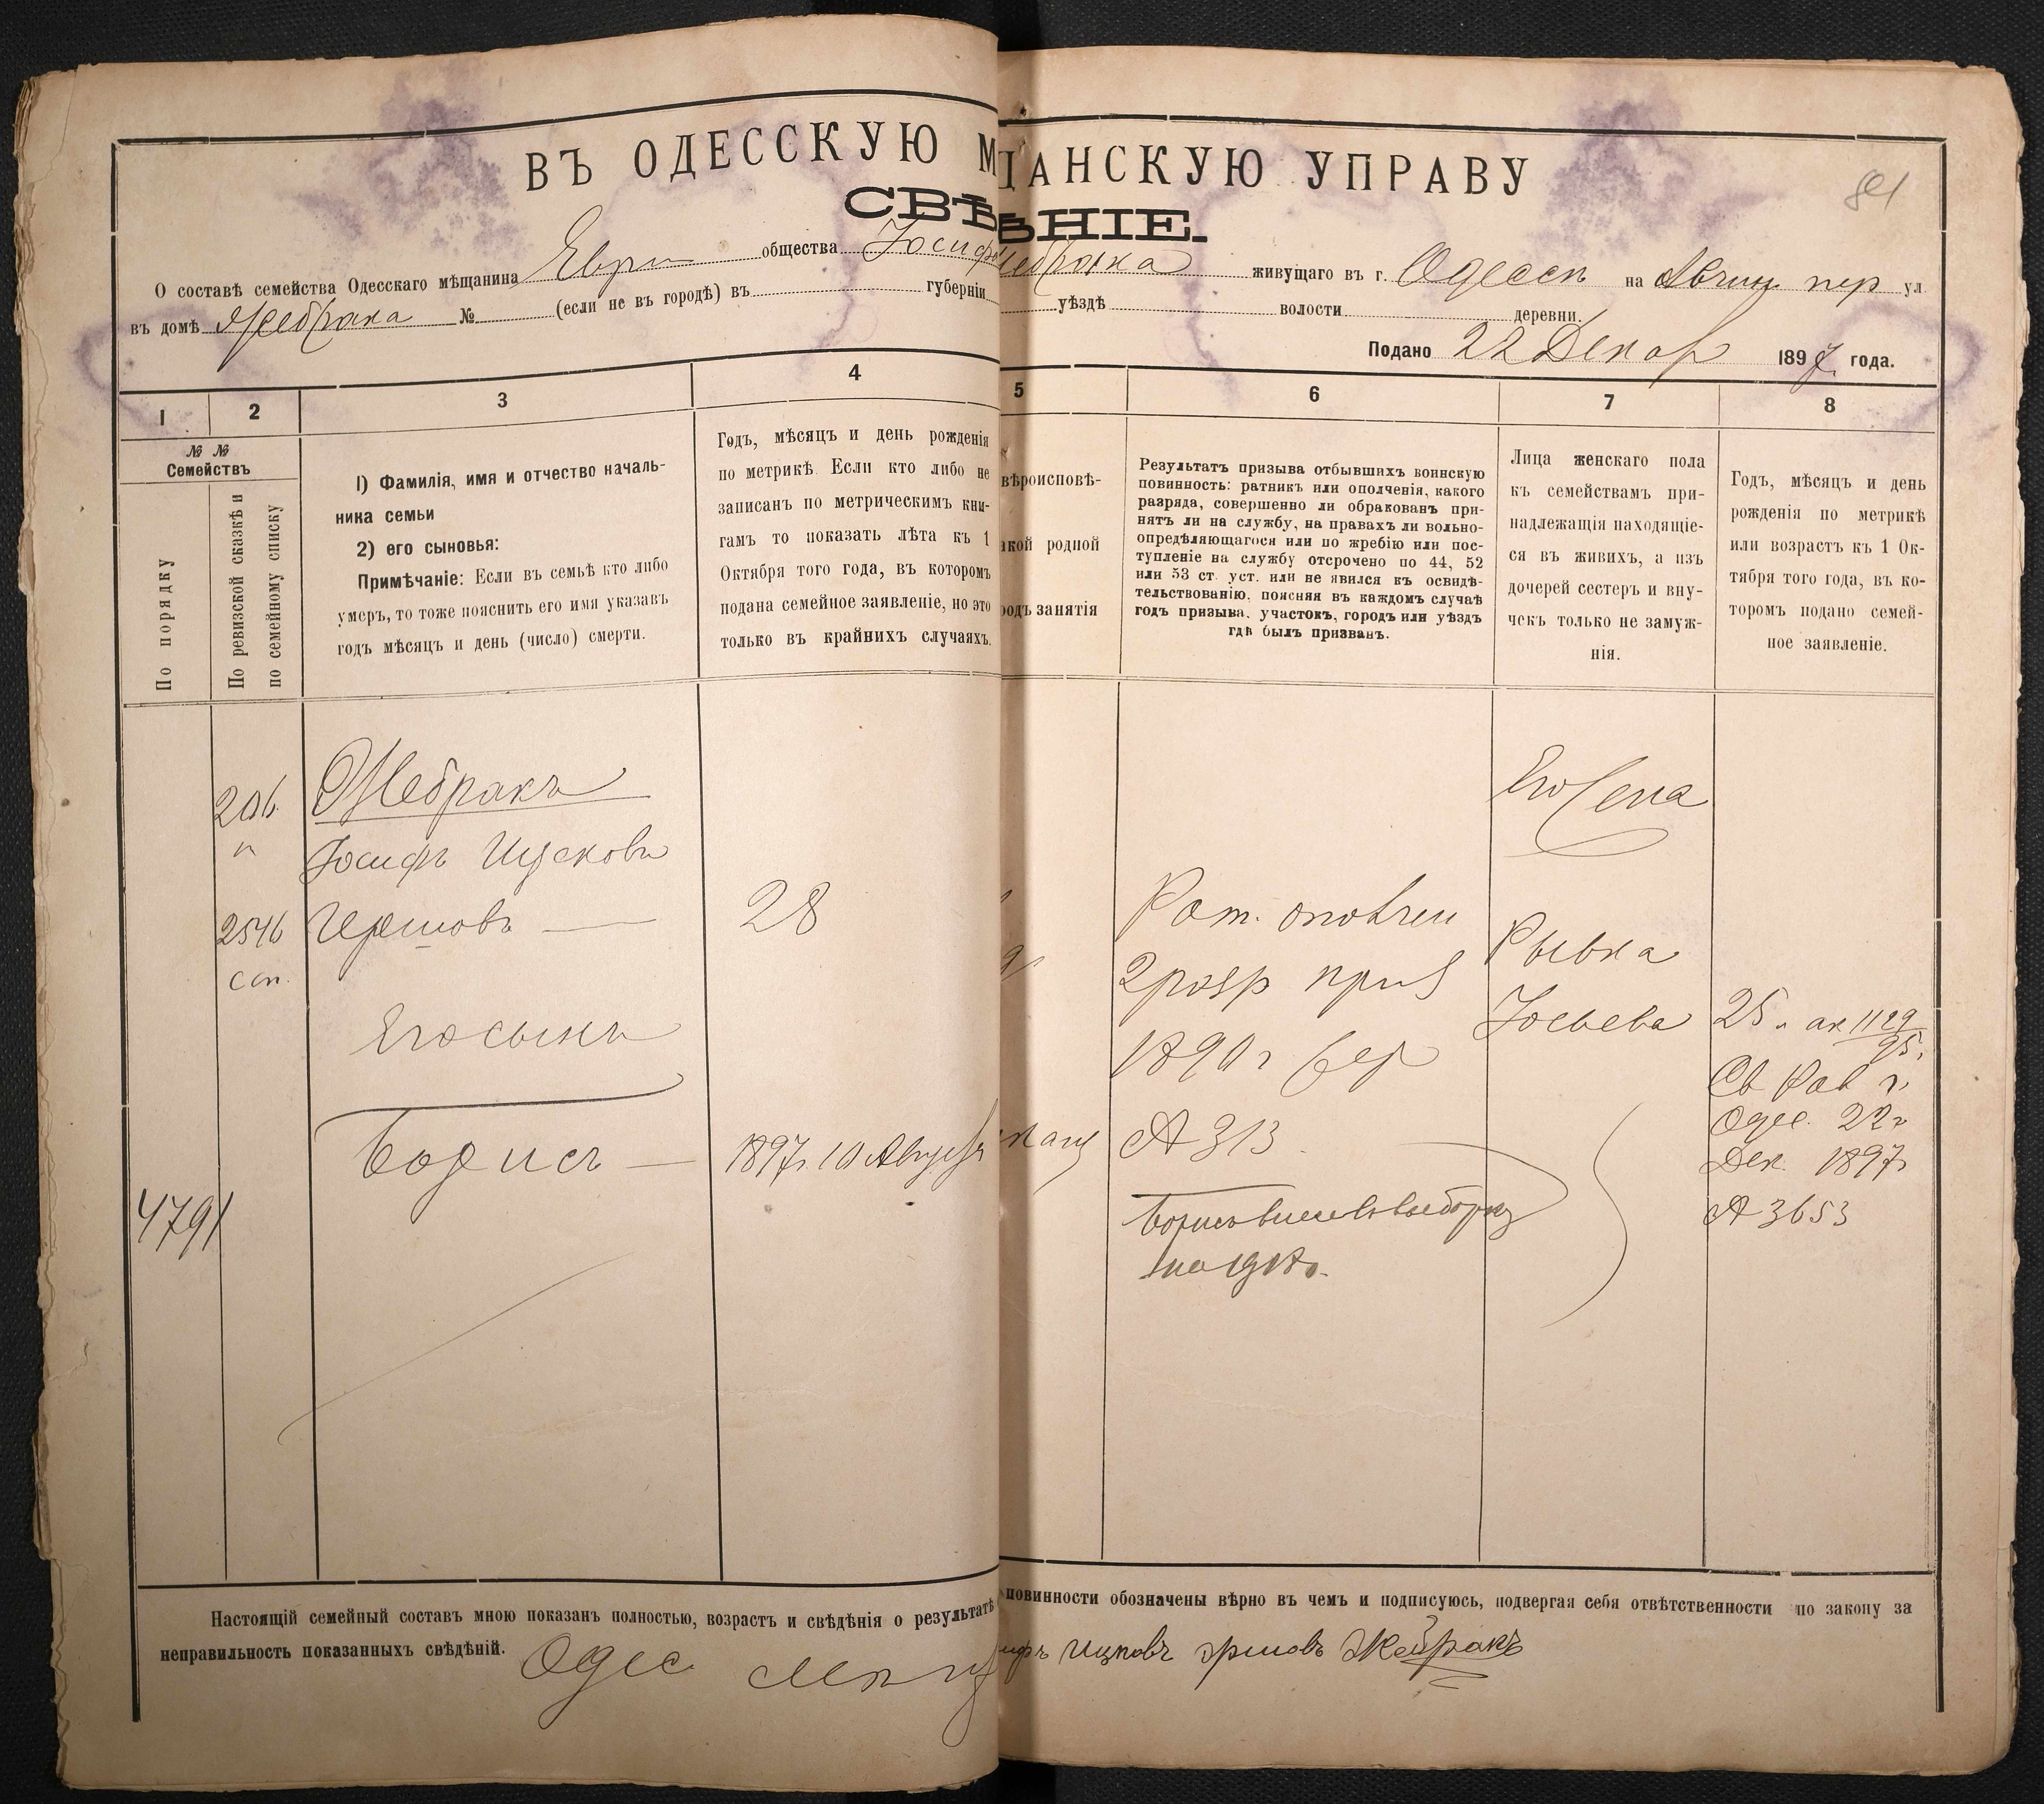 ВЪ ОДЕССКУЮ М ЩАНСКУЮ УПРАВУ
81
СВѢ ѢНІЕ.
О составѣ семейства Одесскаго мѣщанина Евр общества Іосифа Жебрака живущаго въ г. Одессѣ на пер ул
въ домѣ Жебрака № (если не въ городѣ) въ губерніи уѣздѣ волости деревни.
Подано 22 Декабр 1897 года.
1 2 3 4 5 6 7 8
№ №
Семействъ
По порядку
По ревизской сказкѣ и
по семейному списку
1) Фамилія, имя и отчество началь-
ника семьи
2) его сыновья:
Примѣчаніе: Если въ семьѣ кто либо
умеръ, то тоже пояснить его имя указавъ
годъ мѣсяцъ и день (число) смерти.
Годъ, мѣсяцъ и день рожденія
по метрикѣ. Если кто либо не
записанъ по метрическимъ кни-
гамъ то показать лѣта къ 1
Октября того года, въ которомъ
подана семейное заявленіе, но это
только въ крайнихъ случаяхъ.
вѣроисповѣ-
акой родной
родъ занятія
Результатъ призыва отбывшихъ воинскую
повинность: ратникъ или ополченія, какого
разряда, совершенно ли обракованъ при-
нятъ ли на службу, на правахъ ли вольно-
опредѣляющагося или по жребію или пос-
тупленіе на службу отсрочено по 44, 52
или 53 ст. уст. или не явился къ освидѣ-
тельствованію, поясняя въ каждомъ случаѣ
годъ призыва, участокъ, городъ или уѣздъ
гдѣ былъ призванъ.
Лица женскаго пола
къ семействамъ при-
надлежащія находящіе-
ся въ живихъ, а изъ
дочерей сестеръ и вну-
чекъ только не замуж-
нія.
Годъ, мѣсяцъ и день
рожденія по метрикѣ
или возрастъ къ 1 Ок-
тября того года, въ ко-
торомъ подано семей-
ное заявленіе.
206
п
2546
сп.
4791
Жебракъ
Іосифъ Ицсковъ
Гершовъ —
Его сынъ
Борисъ —
28
1897 г. 10 Августа
Рат. ополчен
2 разр приз
1890 г
№ 313
Борисъ внесенъ въ выборку
на 1918 г.
Его жена
Рывка
Іосьева
25 л. ак 1129
95 г.
Св Рав г.
Одес. 22 г
Дек. 1897 г
№ 3653
Настоящій семейный составъ мною показанъ полностью, возрастъ и свѣдѣнія о результатѣ повинности обозначены вѣрно въ чемъ и подписуюсь, подвергая себя отвѣтственности по закону за
неправильность показанныхъ свѣдѣній. Одес ифъ Ицковъ Эршовъ Жебракъ